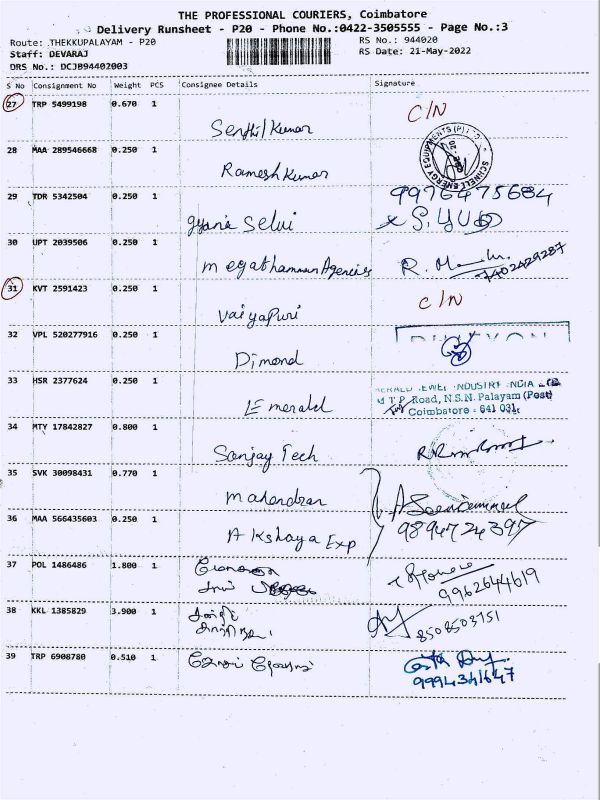 THE PROFESSIONAL COURIERS, Coimbatore
Delivery Runsheet - P20 - Phone No.:0422-3505555 - Page No.:3
Route: THEKKUPALAYAM - P20
RS No.: 944020
Staff: DEVARAJ
RS Date: 21-May-2022
DRS No.: DCJB94402003
S No Consignment No Weight PCS Consignee Details Signature
27 TRP 5499198 0.670 1
C/N
Senthil Kumar
28 MAA 289546668 0.250 1
Ramesh Kumar
29 TDR 5342504 0.250 1
9976475684
gyana Selvi
30 UPT 2039506 0.250 1
Megathamman Agencies
7402429287
31 KVT 2591423 0.250 1
C/N
Vaiyapuri
32 VPL 520277916 0.250 1
Dimond
33 HSR 2377624 0.250 1
M T P Road, N.S.N. Palayam (Post)
Emerald
Coimbatore - 641 031.
34 MTY 17842827 0.800 1
Sanjay Tech
35 SVK 30098431 0.770 1
Mahendran
36 MAA 566435603 0.250 1
9894724397
Akshaya Exp
37 POL 1486486 1.800 1
9962644619
38 KKL 1385829 3.900 1
8508503751
39 TRP 6908780 0.510 1
9994341647